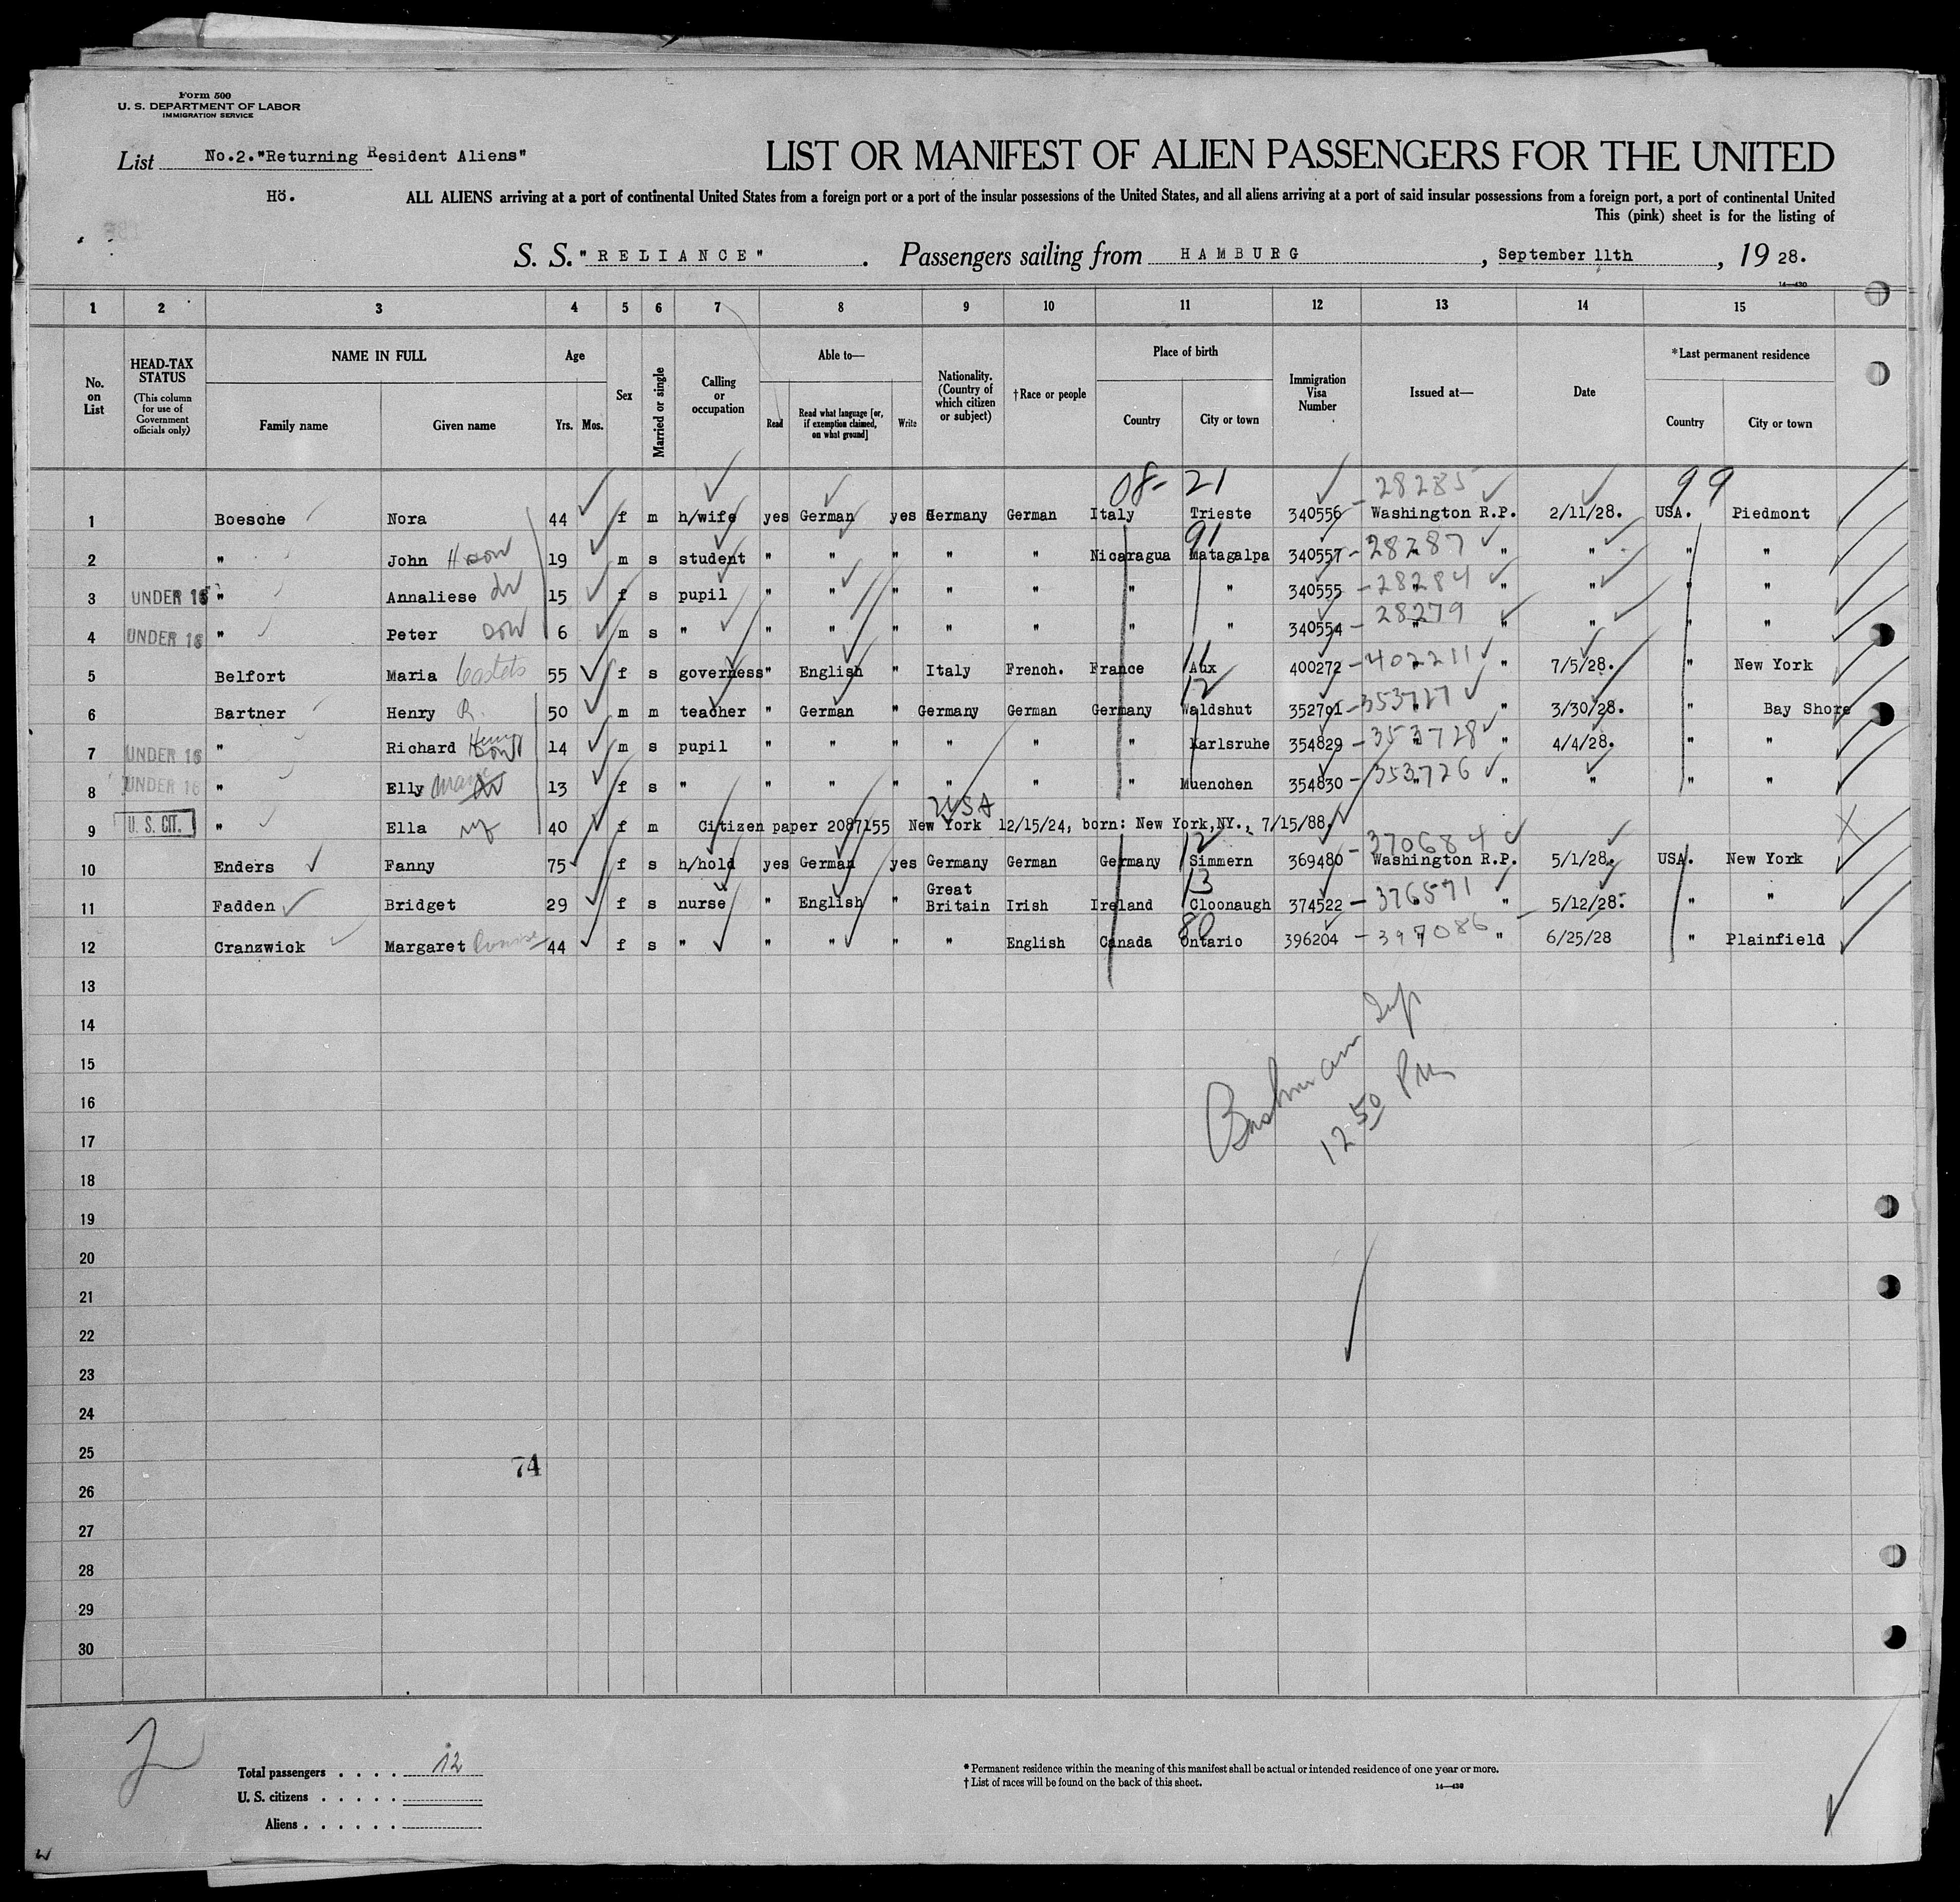 Form 500
U. S. DEPARTMENT OF LABOR
IMMIGRATION SERVICE
List No.2."Returning Resident Aliens"
LIST OR MANIFEST OF ALIEN PASSENGERS FOR THE UNITED
Hö.
ALL ALIENS arriving at a port of continental United States from a foreign port or a port of the insular possessions of the United States, and all aliens arriving at a port of said insular possessions from a foreign port, a port of continental United
This (pink) sheet is for the listing of
S. S. "RELIANCE". Passengers sailing from HAMBURG, September 11th, 19 28.
14—430
1 2 3 4 5 6 7 8 9 10 11 12 13 14 15
No. on List
HEAD-TAX STATUS (This column for use of Government officials only)
NAME IN FULL
Family name Given name
Age
Yrs. Mos.
Sex
Married or single
Calling or occupation
Able to—
Read Read what language [or, if exemption claimed, on what ground] Write
Nationality. (Country of which citizen or subject)
†Race or people
Place of birth
Country City or town
Immigration Visa Number
Issued at—
Date
*Last permanent residence
Country City or town
08- 21 28285 99
1 Boesche Nora 44 f m h/wife yes German yes Germany German Italy Trieste 340556 Washington R.P. 2/11/28. USA. Piedmont
91
2 " John H son 19 m s student " " " " " Nicaragua Matagalpa 340557 - 28287 " " " "
3 UNDER 16 " Annaliese dr 15 f s pupil " " " " " " " 340555 - 28284 " " " "
4 UNDER 16 " Peter son 6 m s " " " " " " " " 340554 - 28279 " " " " "
11
5 Belfort Maria 55 f s governess " English " Italy French. France Aux 400272 - 402211 " 7/5/28. " New York
12
6 Bartner Henry R. 50 m m teacher " German " Germany German Germany Waldshut 352791 - 353727 " 3/30/28. " Bay Shore
7 UNDER 16 " Richard Henry son 14 m s pupil " " " " " " Karlsruhe 354829 - 353728 " 4/4/28. " "
8 UNDER 16 " Elly 13 f s " " " " " " " Muenchen 354830 - 353726 " " " "
USA
9 U. S. CIT. " Ella wf 40 f m Citizen paper 2087155 New York 12/15/24, born: New York,NY., 7/15/88.
12 370684
10 Enders Fanny 75 f s h/hold yes German yes Germany German Germany Simmern 369480 - Washington R.P. 5/1/28. USA. New York
13
11 Fadden Bridget 29 f s nurse " English " Great Britain Irish Ireland Cloonaugh 374522 - 376571 " 5/12/28. " "
80
12 Cranzwick Margaret 44 f s " " " " " English Canada Ontario 396204 - 397086 " 6/25/28 " Plainfield
13
14
15
16
17
Inp
12 50 PM
18
19
20
21
22
23
24
25
74
26
27
28
29
30
2
Total passengers . . . . 12
U. S. citizens . . . . .
Aliens . . . . . .
* Permanent residence within the meaning of this manifest shall be actual or intended residence of one year or more.
† List of races will be found on the back of this sheet.
14—430